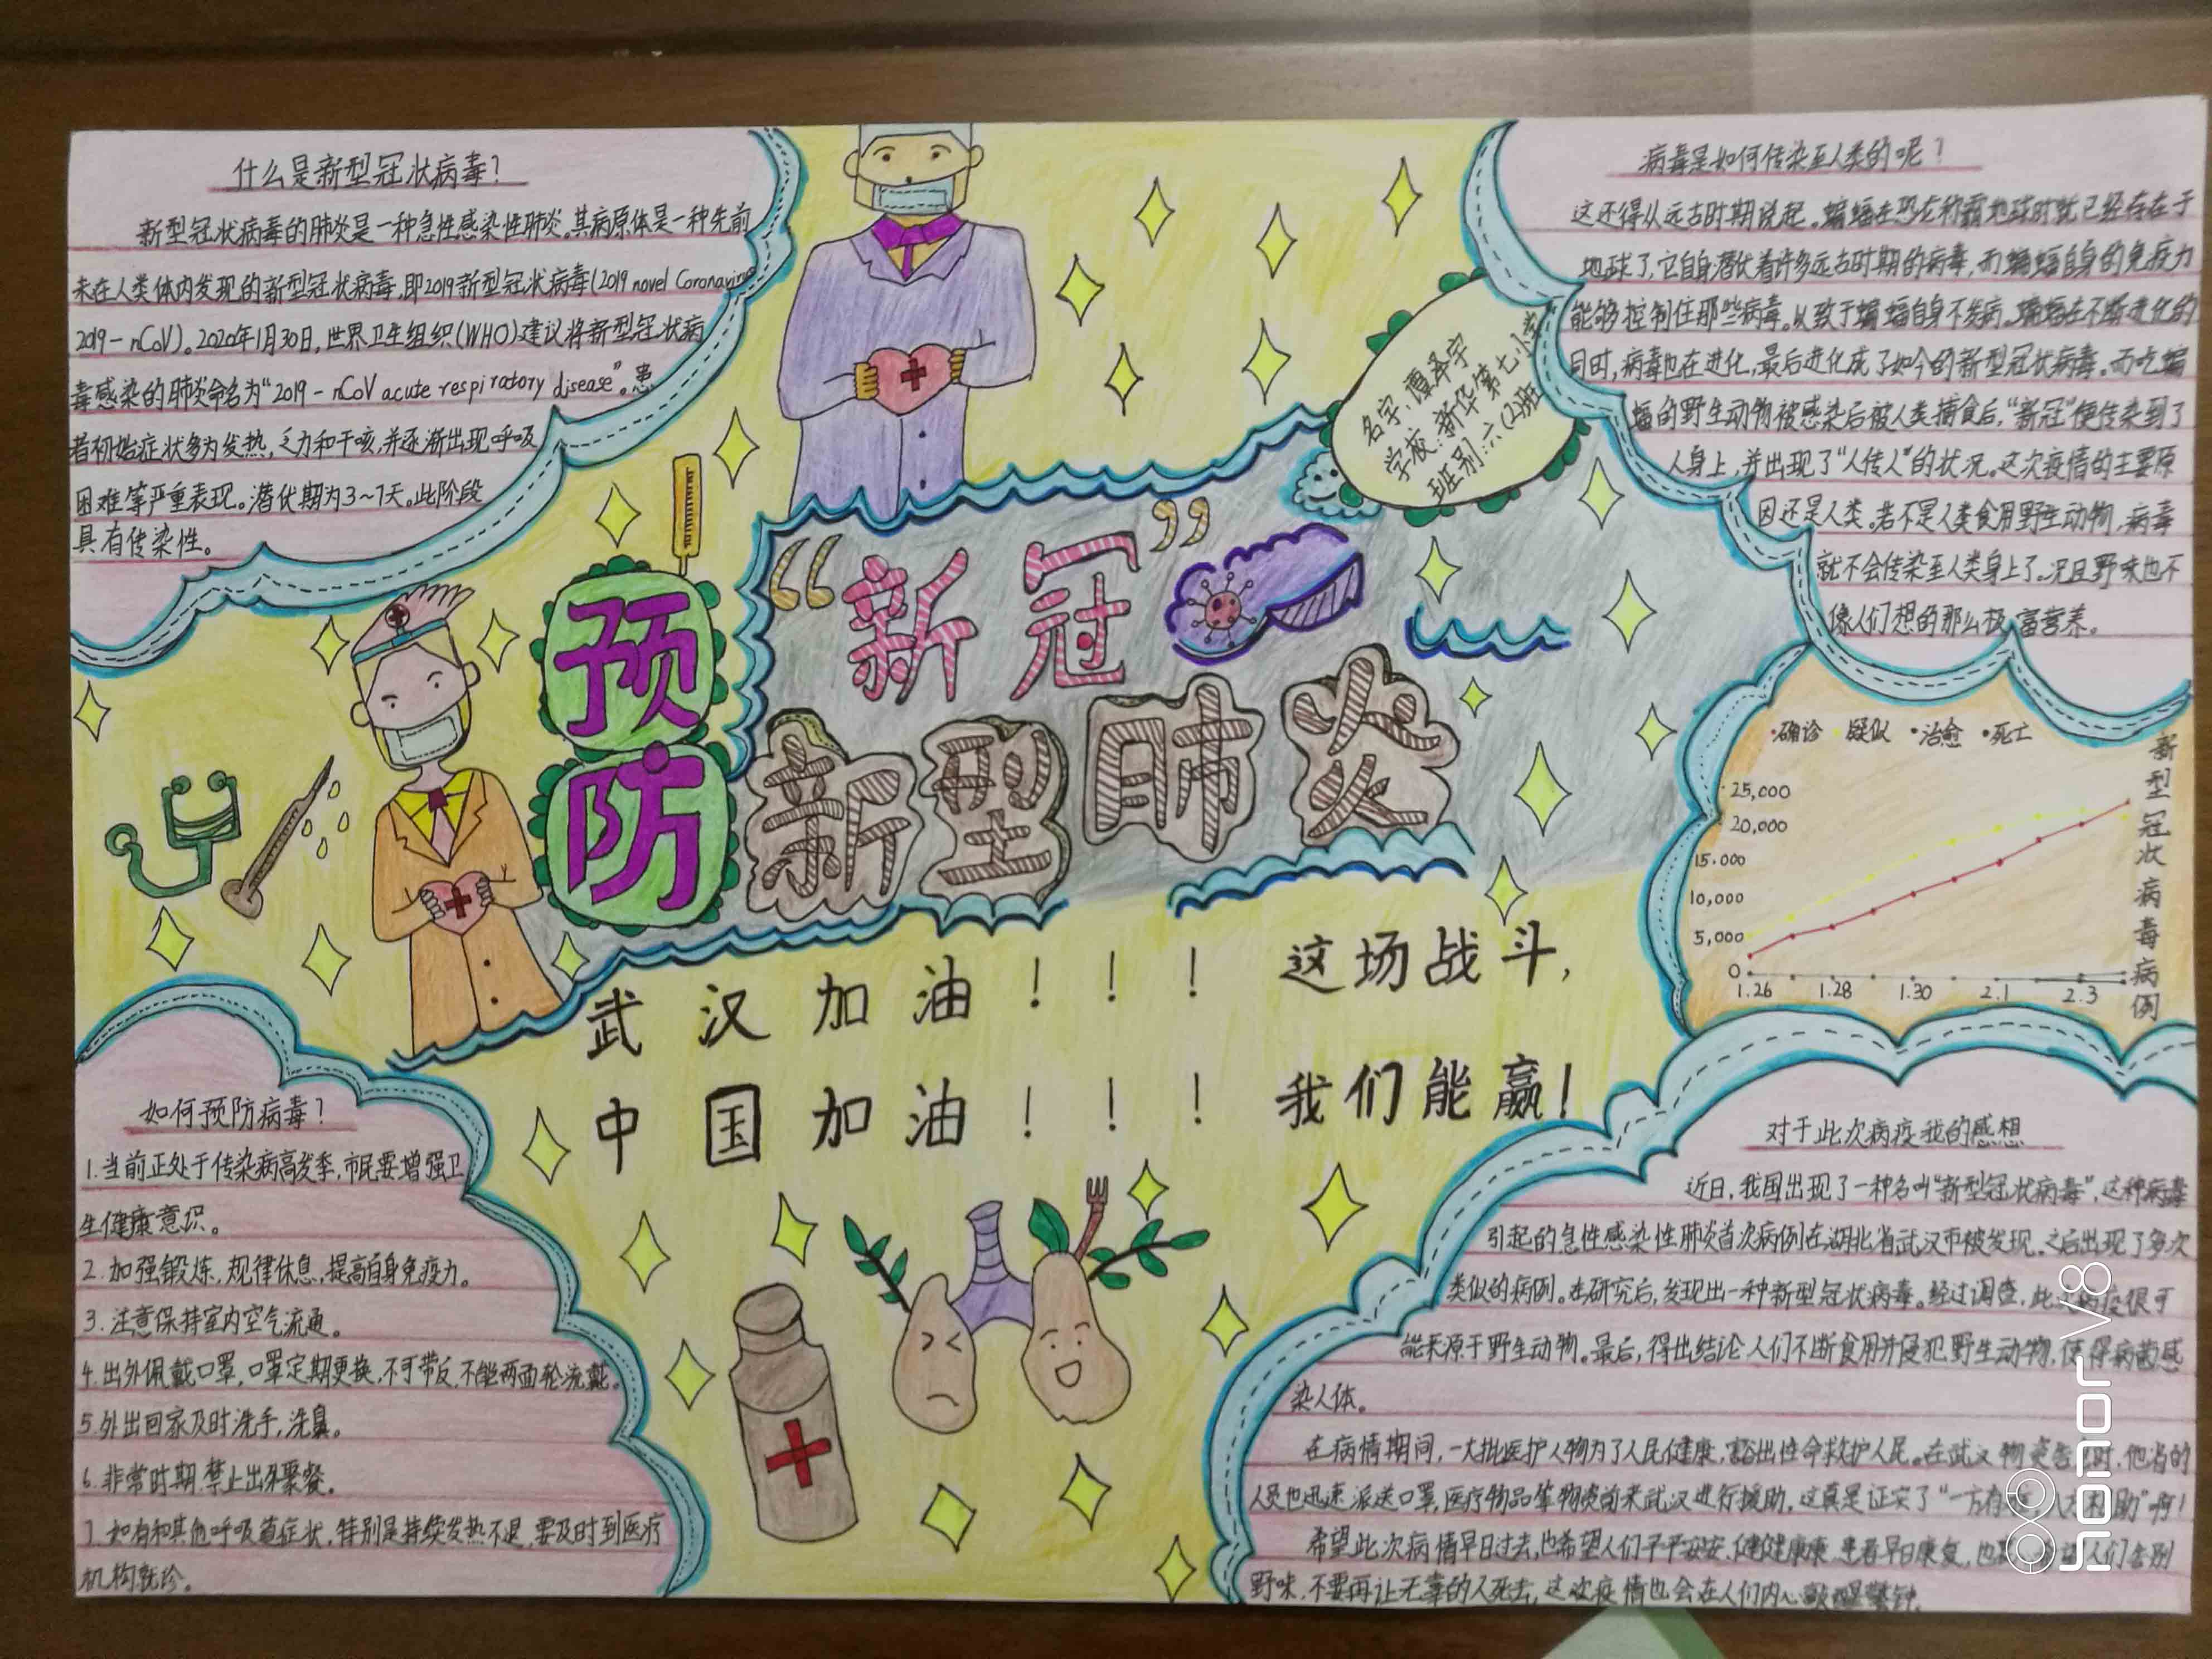 什么是新型冠状病毒?
新型冠状病毒的肺炎是一种急性感染性肺炎。其病原体是一种先前
未在人类体内发现的新型冠状病毒,即2019新型冠状病毒(2019 novel Coronavirus
2019-nCoV)。2020年1月30日,世界卫生组织(WHO)建议将新型冠状病
毒感染的肺炎命名为“2019-nCoV acute respiratory disease”。患
者初始症状多为发热,乏力和干咳,并逐渐出现呼吸
困难等严重表现。潜伏期为3~7天。此阶段
具有传染性。
病毒是如何传染至人类的呢?
这还得从远古时期说起。蝙蝠在恐龙称霸地球时就已经存在于
地球了,它自身潜伏着许多远古时期的病毒,而蝙蝠自身的免疫力
能够控制住那些病毒。以致于蝙蝠自身不发病。蝙蝠在不断进化的
同时,病毒也在进化,最后进化成了如今的新型冠状病毒。而吃蝙
蝠的野生动物被感染后被人类捕食后,“新冠”便传染到了
人身上,并出现了“人传人”的状况。这次疫情的主要原
因还是人类。若不是人类食用野生动物,病毒
就不会传染至人类身上了。况且野味也不
像人们想的那么极富营养。
名字:谭泽宇
学校:新华第七小学
班别:六(2)班
预防
“新冠”
新型肺炎
武汉加油!!!这场战斗,
中国加油!!!我们能赢!
•确诊 •疑似 •治愈 •死亡
新型冠状病毒病例
25,000
20,000
15,000
10,000
5,000
0
1.26 1.28 1.30 2.1 2.3
如何预防病毒?
1.当前正处于传染病高发季,市民要增强卫
生健康意识。
2.加强锻炼,规律休息,提高自身免疫力。
3.注意保持室内空气流通。
4.出外佩戴口罩,口罩定期更换,不可带反,不能两面轮流戴。
5.外出回家及时洗手,洗鼻。
6.非常时期,禁止出外聚餐。
7.如有和其他呼吸道症状,特别是持续发热不退,要及时到医疗
机构就诊。
对于此次病疫我的感想
近日,我国出现了一种名叫“新型冠状病毒”,这种病毒
引起的急性感染性肺炎首次病例在湖北省武汉市被发现。之后出现了多次
类似的病例。在研究后,发现出一种新型冠状病毒。经过调查,此次病疫很可
能来源于野生动物。最后,得出结论人们不断食用并侵犯野生动物,使得病菌感
染人体。
在病情期间,一大批医护人物为了人民健康,豁出性命救护人民。在武汉物资告急时,他省的
人员也迅速派送口罩,医疗物品等物资前来武汉进行援助,这真是证实了“一方有难,八方相助”啊!
希望此次病情早日过去,也希望人们平平安安,健健康康,患者早日康复,也希望人们告别
野味,不要再让无辜的人死去,这次疫情也会在人们内心敲醒警钟。
honor V8